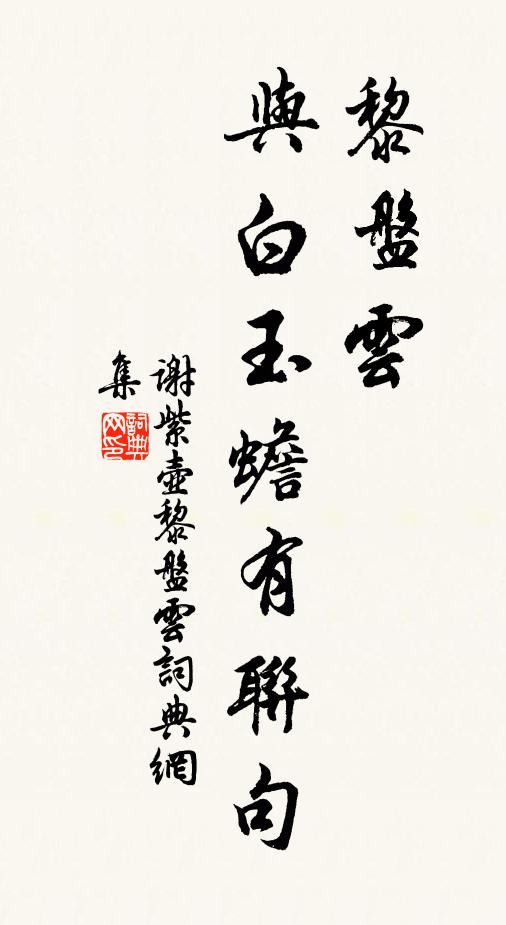 黎盤雲
與白玉蟾有聯句
謝紫壺黎盤雲詞典網
集
詞典
网印